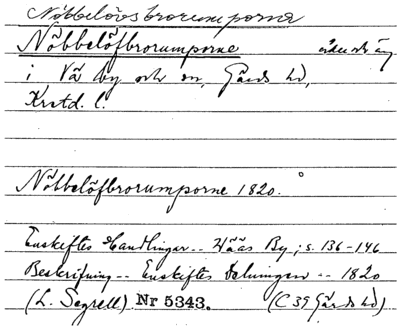 Nöbbelövsbrorumporna
Nöbbelöfbrorumporne åker och äng
i Vä by och sn, Gärds hd,
Krstd. l.
Nöbbelöfbrorumporne 1820.
Enskiftes Handlingar -- Wääs By; s. 136-146
Beskrifning -- Enskiftes Delningen -- 1820
(L. Segrell) Nr 5343. (C 39 Gärds hd)